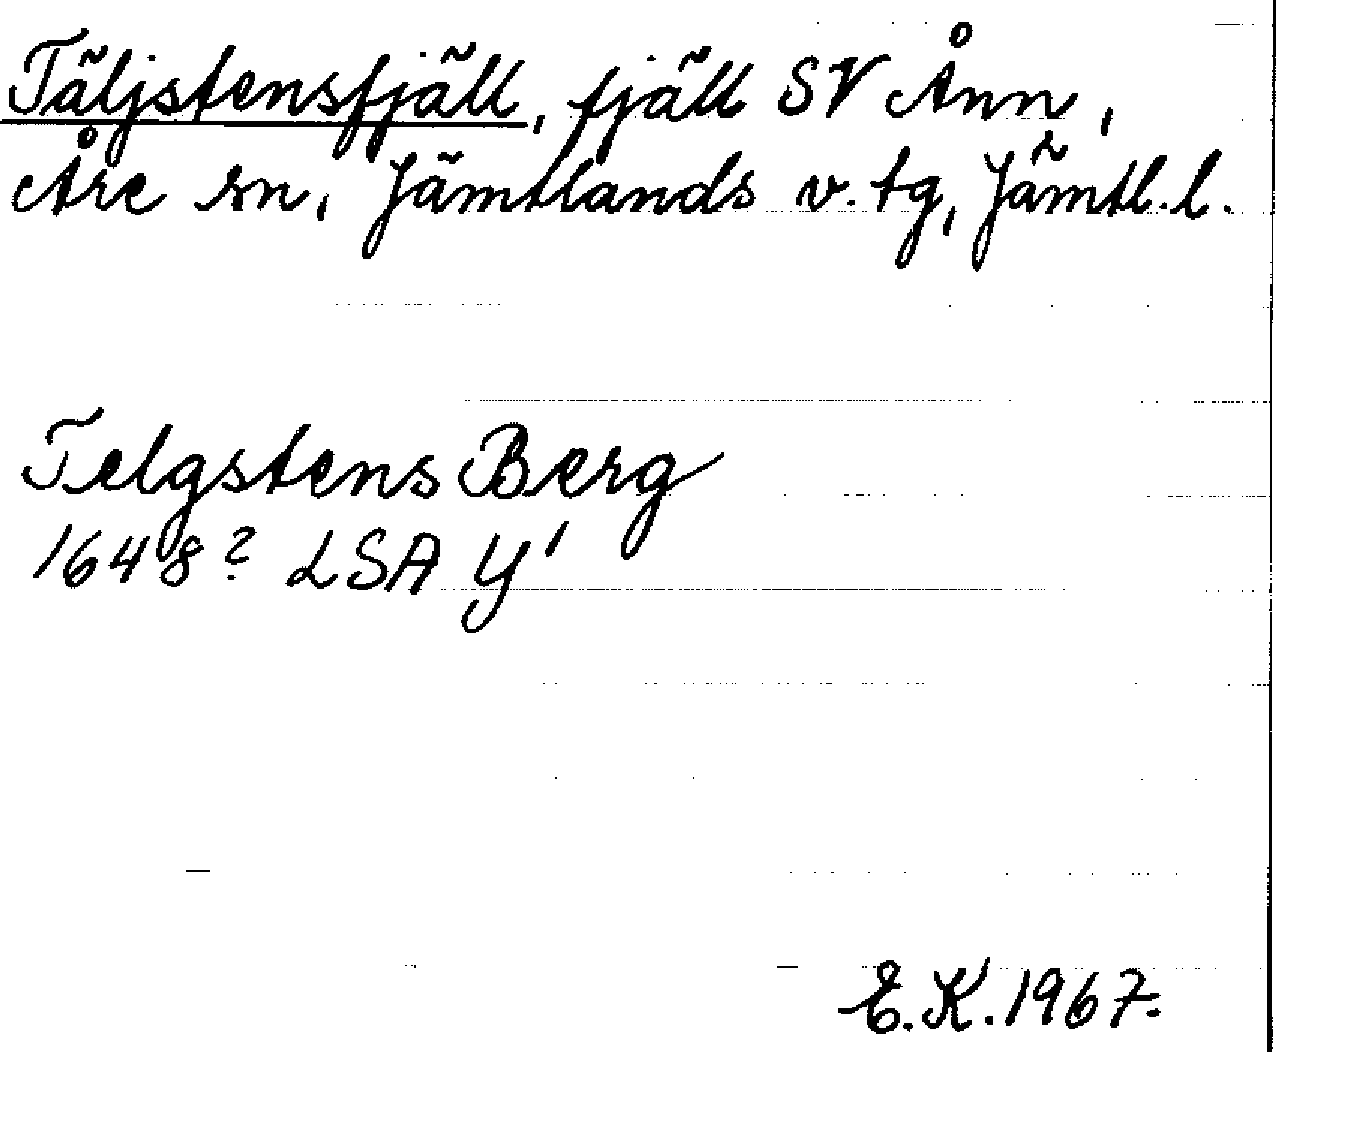 Täljstensfjäll, fjäll SV Ånn,
Åre sn, Jämtlands v. tg, Jämtl. l.
Telgstens Berg
1648? LSA Y¹
E.K. 1967.